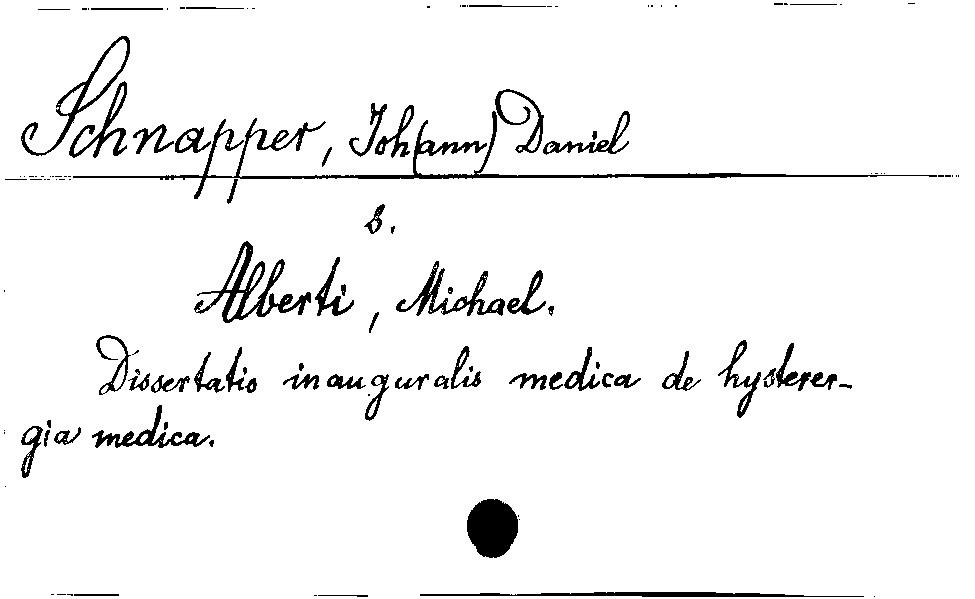 Schnapper, Joh(ann) Daniel
s.
Alberti, Michael.
Dissertatio inauguralis medica de hysterer-
gia medica.